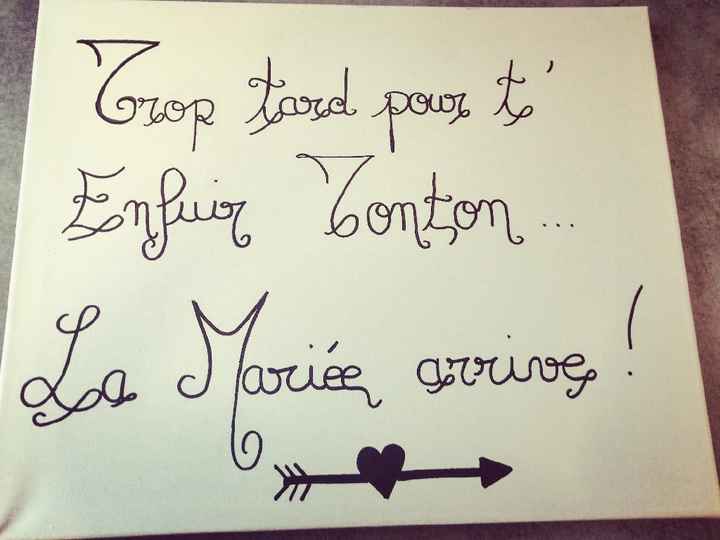 Trop tard pour t'
Enfuir Tonton ...
La Mariée arrive !